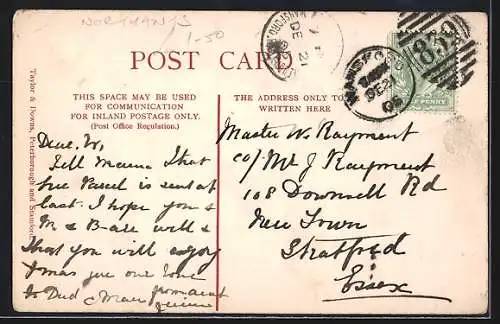 NORTHANTS
1-50
POST CARD.
THIS SPACE MAY BE USED
FOR COMMUNICATION
FOR INLAND POSTAGE ONLY.
(Post Office Regulation.)
THE ADDRESS ONLY TO
WRITTEN HERE
Taylor & Downs, Peterborough and Stamford.
WANSFORD
DE 21
05
DE 21
HALFPENNY
Dear W,
Tell Mama that
the Parcel is sent at
last. I hope you &
M & B are well &
that you will enjoy
Xmas give our love
to Dad & Mar from aunt
Master W. Rayment
c/o Mr J Rayment
108 Downsell Rd
New Town
Stratford
Essex